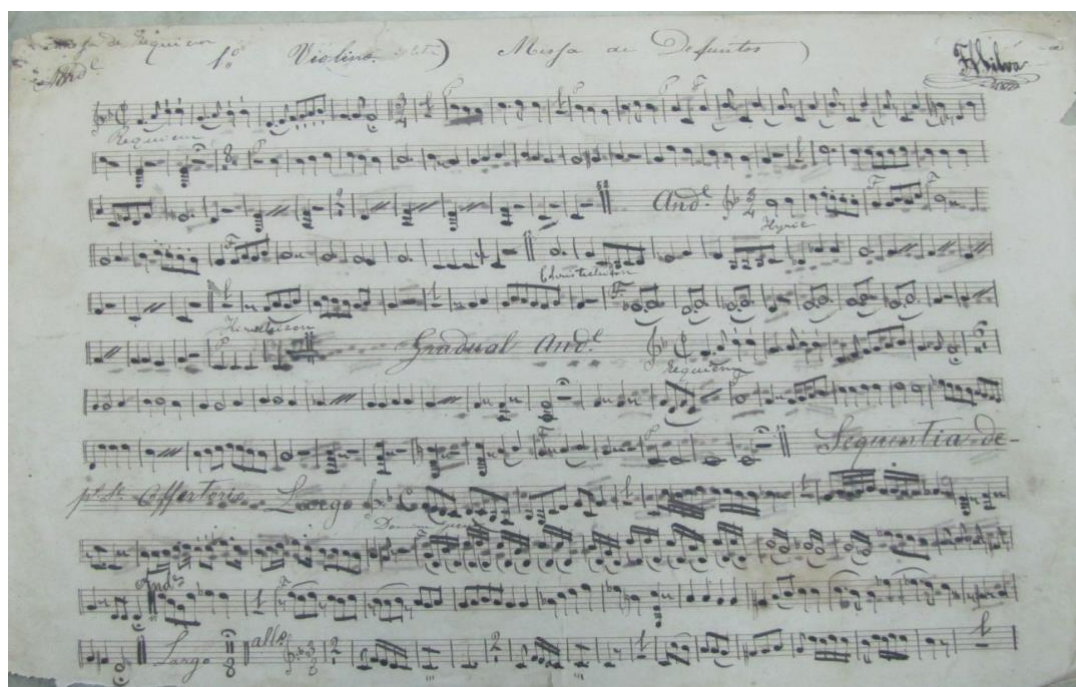 Missa de Requiem
1º Violino. Missa de Defuntos
And.e
FSSilva
Requiem
And.e
Kyrie
Christeleison
Kirieleison
Gradual And.e
Requiem
Sequentia de-
pois Offertorio Largo
Domine
And.e
Largo all.o